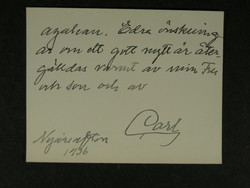 Edra önskning
ar om ett gott nytt år åter-
gälldas varmt av min Fru
och son och av
Carl
Nyårsafton
1936